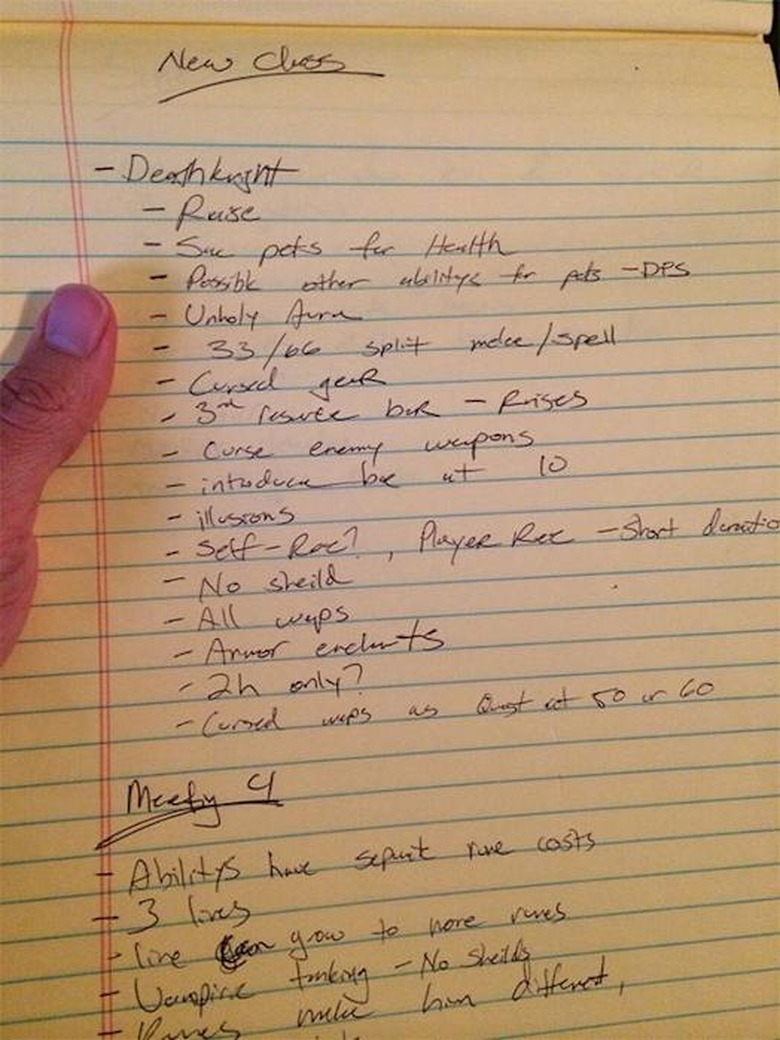 New Class
- Deathknight
- Raise
- Sac pets for Health
- Possible other abilitys for pets - DPS
- Unholy Aura
- 33/66 split melee/spell
- Cursed gear
- 3rd resource bar - Raises
- Curse enemy weapons
- introduce bar at 10
- illusions
- Self-Rez?, Player Rez - Short duratio
- No sheild
- All weps
- Armor enchants
- 2h only?
- Cursed weps as Quest at 50 or 60
Meeting 4
- Abilitys have separit rune costs
- 3 lines
- line can grow to more runes
- Vampiric tanking - No sheilds
- Runes make him different,